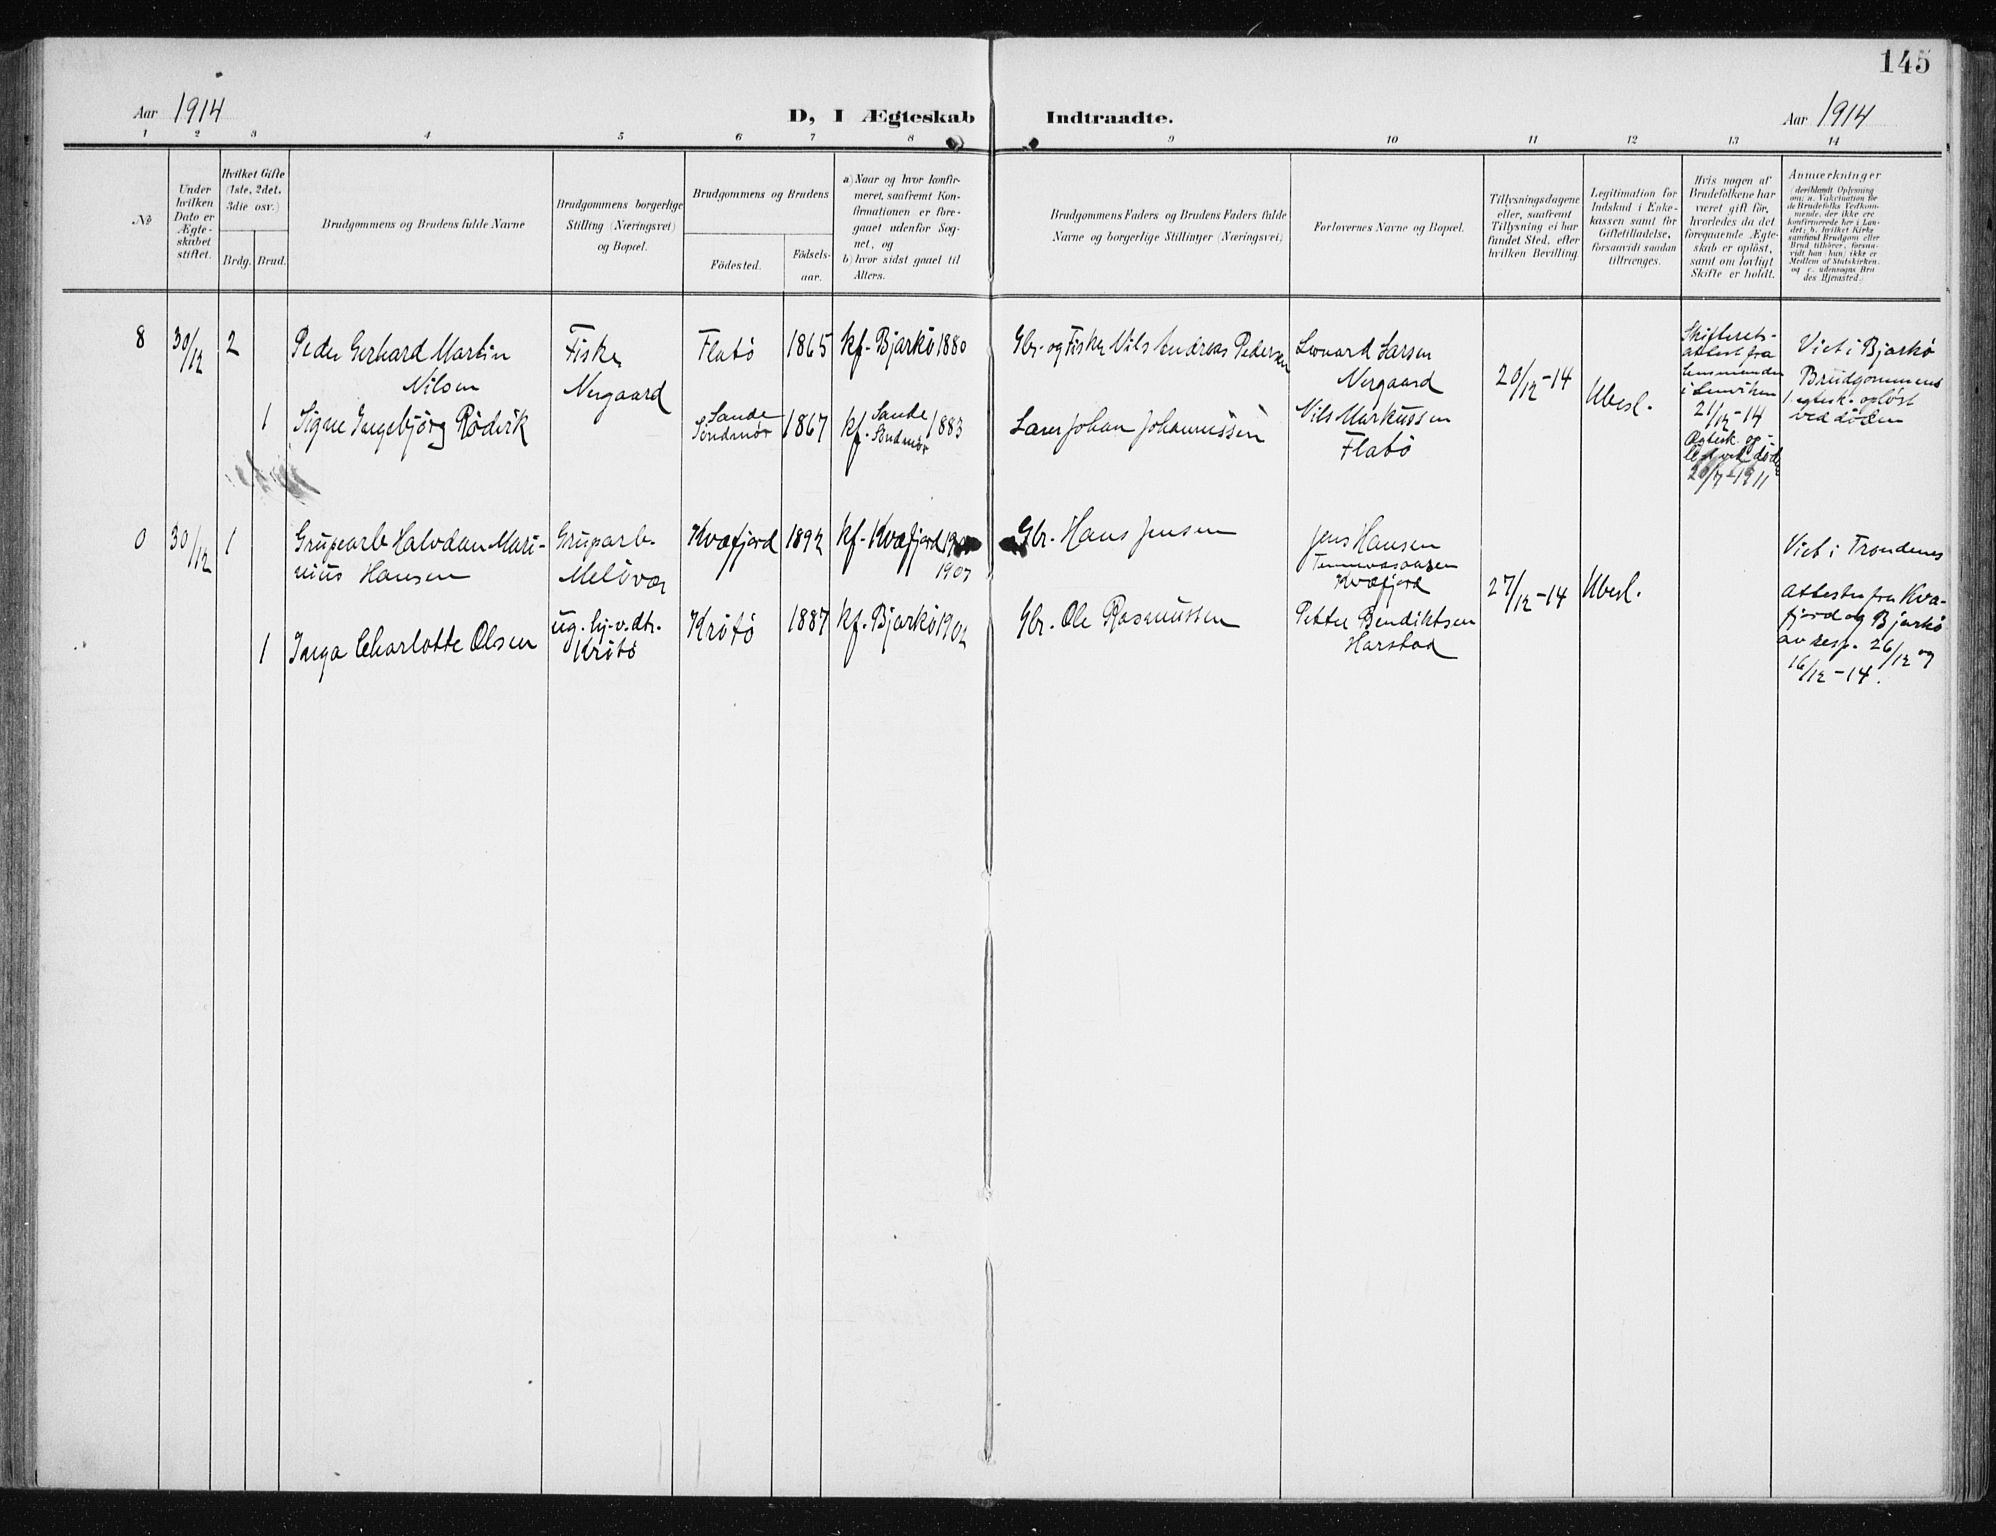 145
Aar 1914
D, I Ægteskab Indtraadte.
Aar 1914
1 2 3 4 5 6 7 8 9 10 11 12 13 14
No
Under
hvilken
Dato er
Ægte-
skabet
stiftet.
Hvilket Gifte
(1ste, 2det.
3die osv.)
Brdg. Brud.
Brudgommens og Brudens fulde Navne
Brudgommens borgerlige
Stilling (Næringsvei)
og Bopæl.
Brudgommens og Brudens
Fødested.
Fødsels-
aar.
a) Naar og hvor konfir-
meret, saafremt Kon-
firmationen er fore-
gaaet udenfor Sog-
net, og
b) hvor sidst gaaet til
Alters.
Brudgommens Faders og Brudens Faders fulde
Navne og borgerlige Stillinger (Næringsvei)
Forlovernes Navne og Bopæl.
Tillysningsdagene
eller, saafremt
Tillysning ei har
fundet Sted, efter
hvilken Bevilling.
Legitimation for
Indskud i Enke-
kassen samt for
Giftetilladelse,
forsaavidt saadan
tiltrænges.
Hvis nogen af
Brudefolkene har
været gift før,
hvorledes da det
foregaaende Ægte-
skab er opløst,
samt om lovligt
Skifte er holdt.
Anmærkninger
(deriblandt Oplysning
om: a. Vakcination for
de Brudefolks Vedkom-
mende, der ikke ere
konfirmerede her i Lan-
det; b. hvilket Kirke
samfund Brudgom eller
Brud tilhører, forsaa-
vidt han (hun) ikke er
Medlem af Statskirken.
og c. udensogns Bru
des Hjemsted.)
8 30/12 2
Peder Gerhard Martin
Nilsen
Fisker
Nergaard
Flatö 1865 kf. Bjarkö 1880
Gbr. og Fisker Nils Andreas Pedersen
Leonard Larsen
Nergaard
20/12-14
Ubesl.
Skifterets-
attest fra
Lensmanden
i Lenviken
21/12-14
20/7-1911
Viet i Bjarkö
Brudgommens
1 egtesk. opløst
ved döden
1 Signe Ingebjörg Rödsik
Sande
Söndmör 1867 kf. Sande
Söndmör 1883
Johan Johannessen
Nils Markussen
Flatö
0 30/12 1
Grupearb Halvdan Mari-
nius Hansen
Gruparb.
Melövær
Kvæfjord 1892 kf. Kvæfjord
1907
Gbr. Hans Jensen
Jens Hansen
Kvæfjord
27/12-14
Ubesl.
Viet i Trondenes
Attester fra Kvæ-
fjord og Bjarkö
av resp. 26/12 og
16/12-14.
1 Inga Charlotte Olsen
ug. hj.v. dtr.
Krötö
Krötö 1887 kf. Bjarkö 1902
Gbr. Ole Rasmussen
Petter Bendiktsen
Harstad